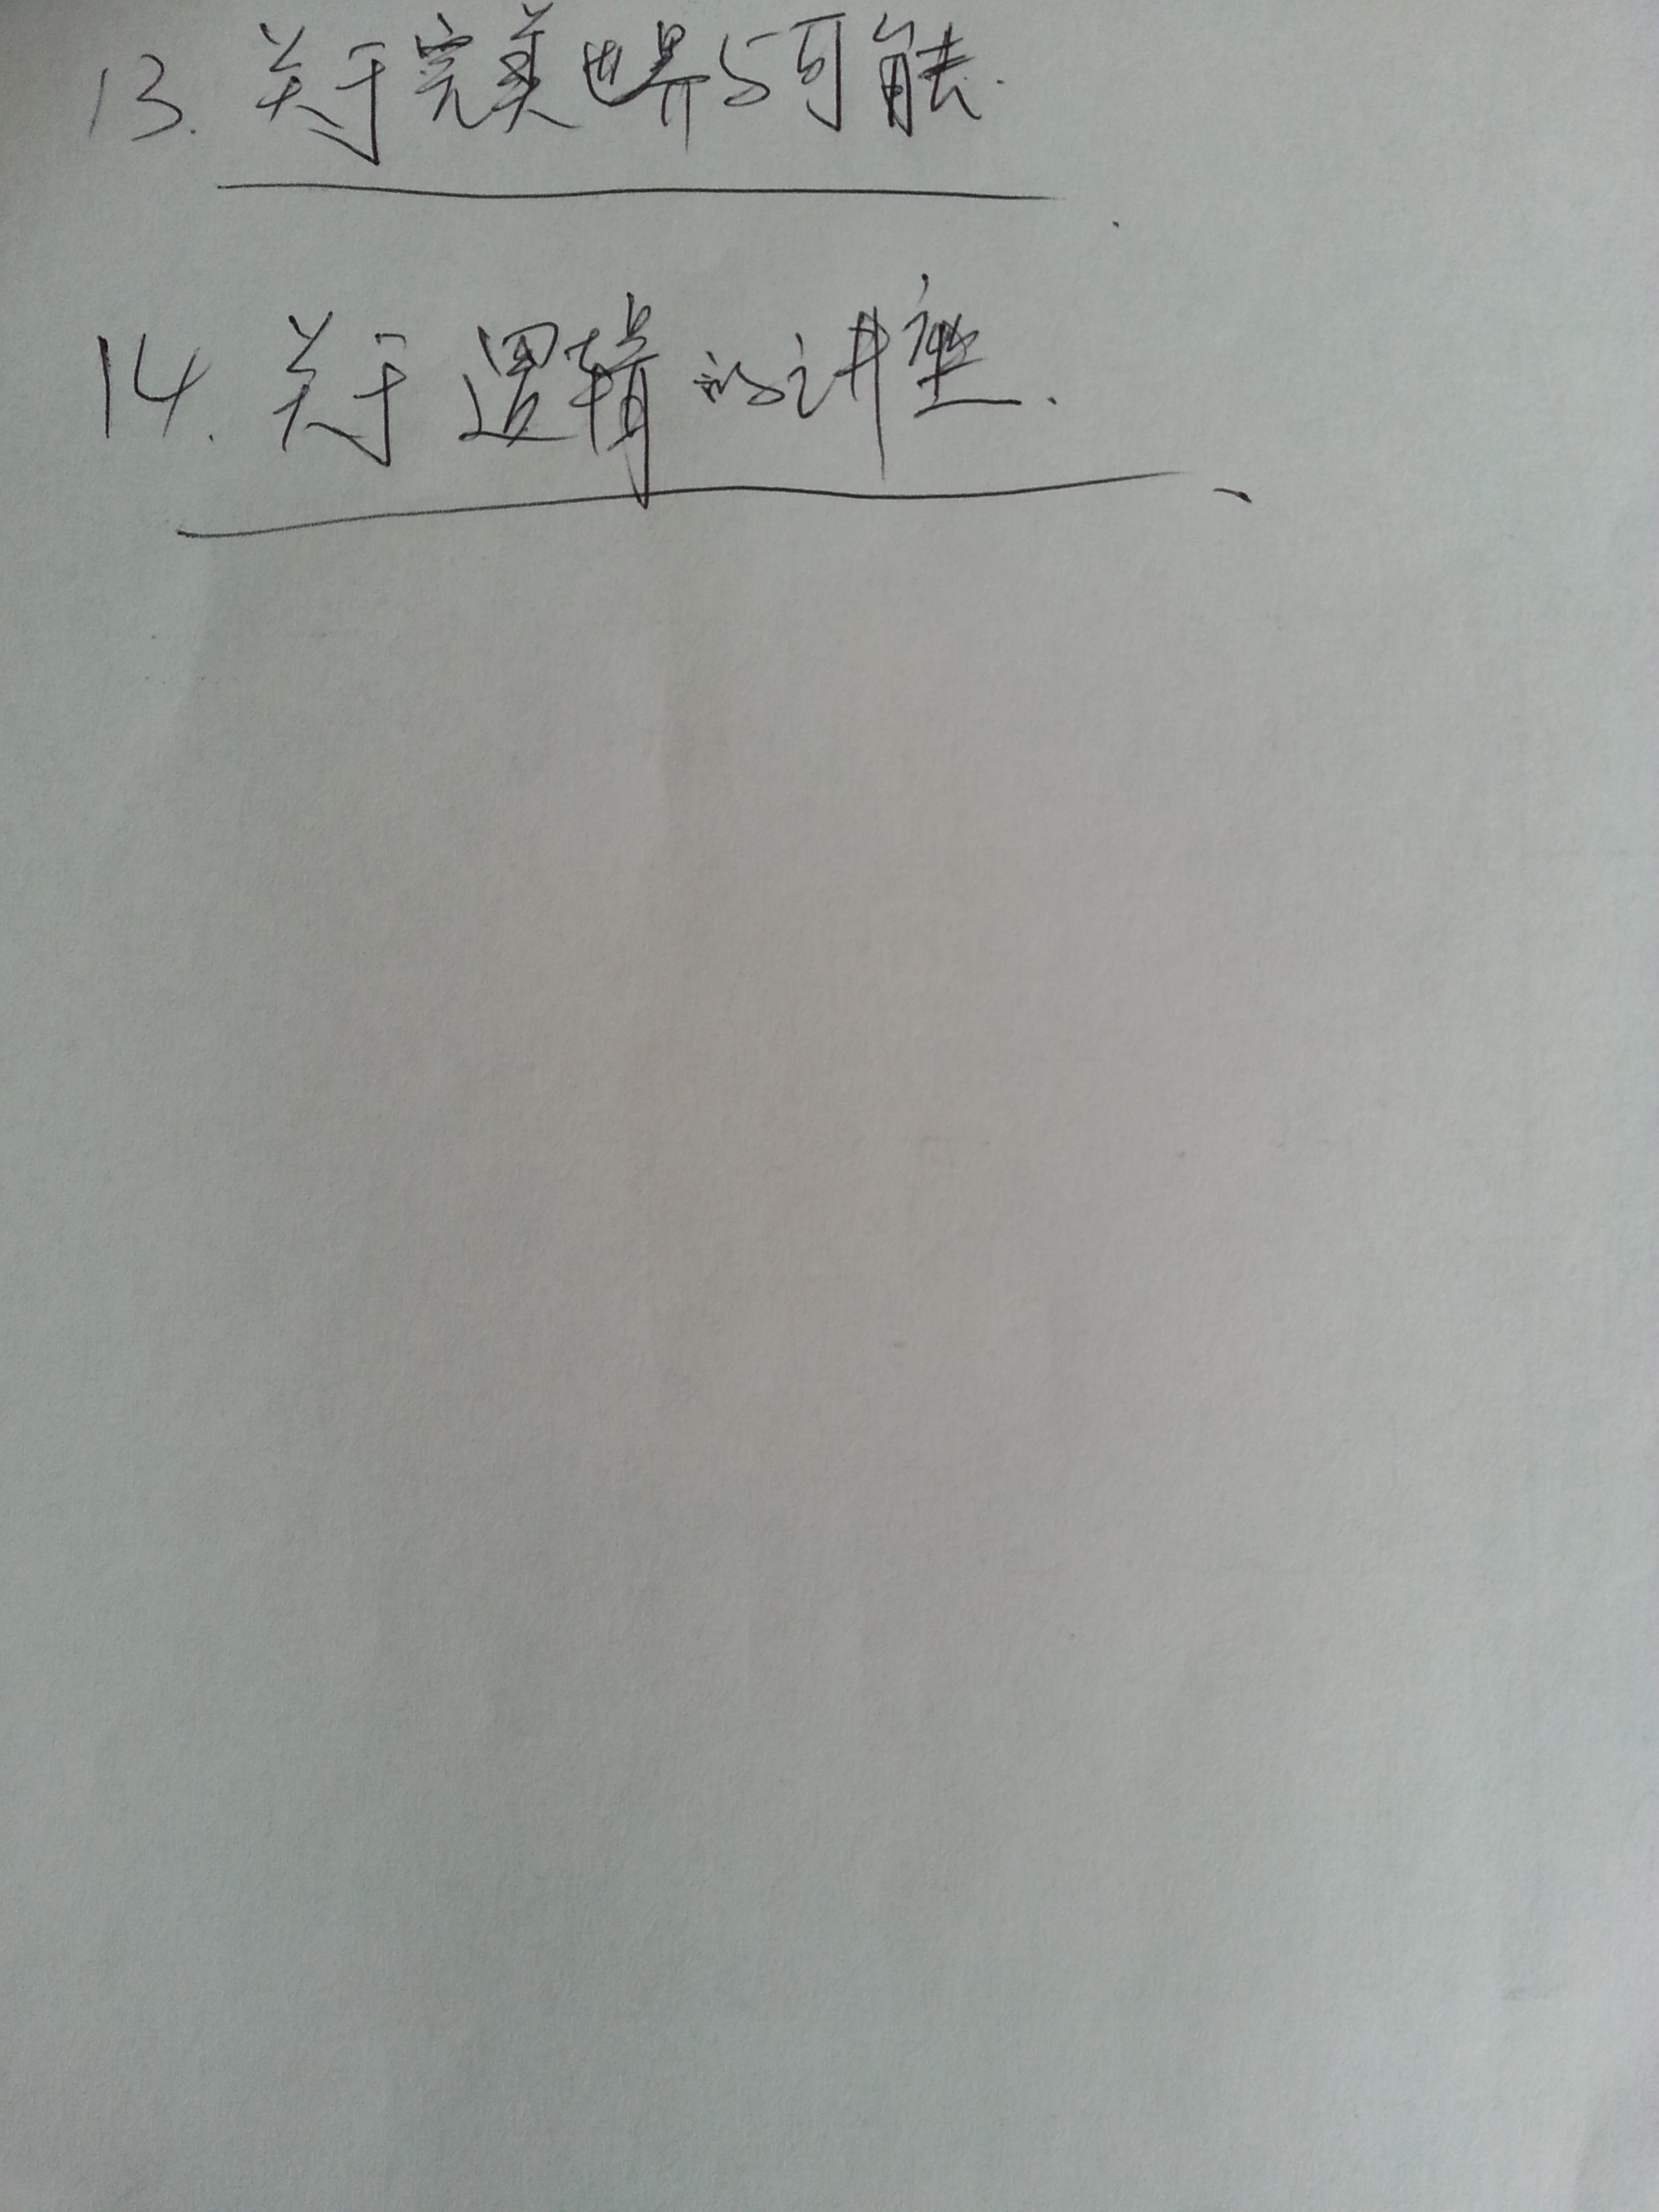 13. 关于完美世界与可能.
14. 关于逻辑的讲座.